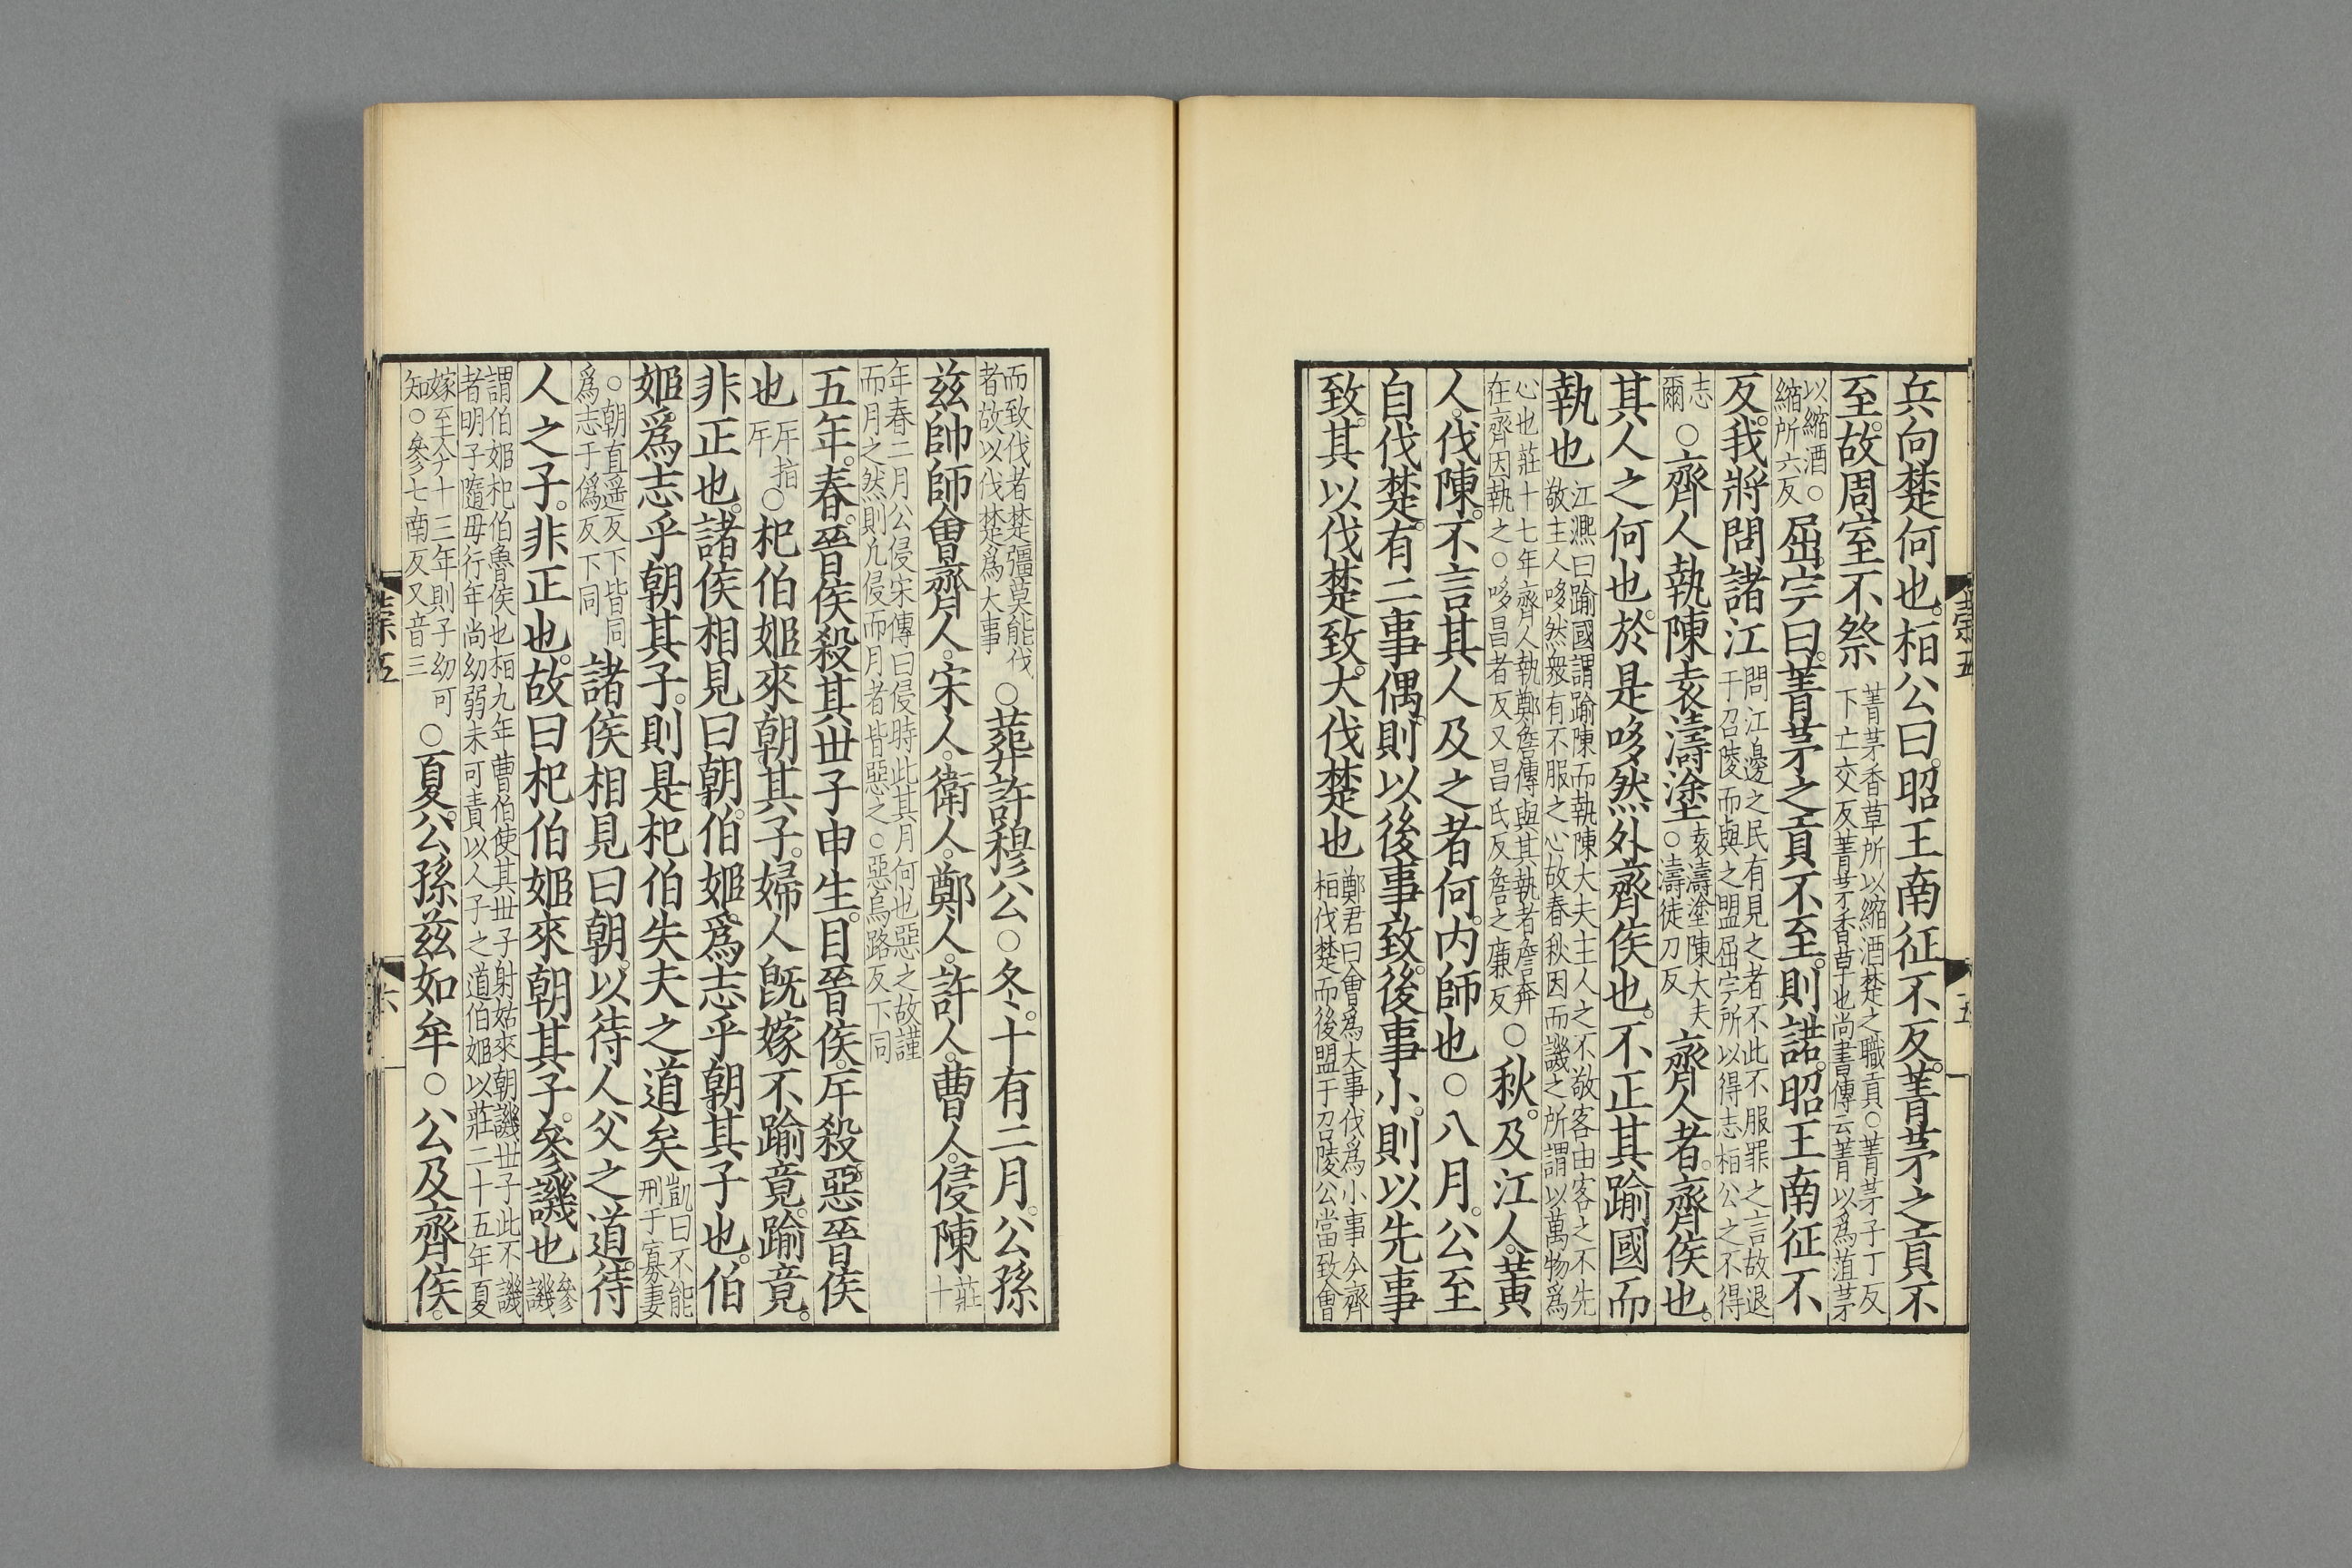 兵向楚何也桓公曰昭王南征不反菁茅之貢不
至故周室不祭菁茅香草所以縮酒楚之職貢○菁茅子丁反下亡交反菁茅香草也尚書傳云菁以爲菹茅
以縮酒○縮所六反屈完曰菁茅之貢不至則諾昭王南征不
反我將問諸江問江邊之民有見之者不此不服罪之言故退于召陵而與之盟屈完所以得志桓公之不得
志爾○齊人執陳袁濤塗袁濤塗陳大夫○濤徒刀反齊人者齊侯也
其人之何也於是哆然外齊侯也不正其踰國而
執也江熙曰踰國謂踰陳而執陳大夫主人之不敬客由客之不先敬主人哆然衆有不服之心故春秋因而譏之所謂以萬物爲
心也莊十七年齊人執鄭詹傳與其執者詹奔在齊因執之○哆昌者反又昌氏反詹之廉反○秋及江人黄
人伐陳不言其人及之者何内師也○八月公至
自伐楚有二事偶則以後事致後事小則以先事
致其以伐楚致大伐楚也鄭君曰會爲大事伐爲小事今齊桓伐楚而後盟于召陵公當致會
而致伐者楚彊莫能伐者故以伐楚爲大事○葬許穆公○冬十有二月公孫
兹帥師會齊人宋人衛人鄭人許人曹人侵陳莊十
年春二月公侵宋傳曰侵時此其月何也惡之故謹而月之然則凡侵而月者皆惡之○惡烏路反下同
五年春晉侯殺其丗子申生目晉侯斥殺惡晉侯
也斥指○斥○杞伯姬來朝其子婦人既嫁不踰竟踰竟
非正也諸侯相見曰朝伯姬爲志乎朝其子也伯
姬爲志乎朝其子則是杞伯失夫之道矣凱曰不能刑于寡妻
○朝直遥反下皆同爲志于僞反下同諸侯相見曰朝以待人父之道待
人之子非正也故曰杞伯姬來朝其子參譏也參譏
謂伯姬杞伯魯侯也桓九年曹伯使其丗子射姑來朝譏丗子此不譏者明子隨母行年尚幼弱未可責以人子之道伯姬以莊二十五年夏
嫁至今十三年則子幼可知○參七南反又音三○夏公孫兹如牟○公及齊侯